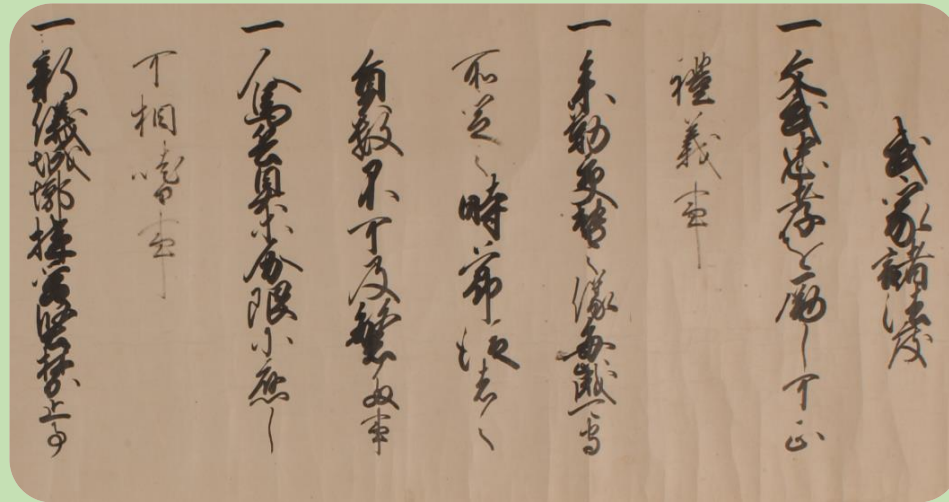 武家諸法度
一文武忠孝を励し可正
禮義事
一参勤交替之儀毎歳可守
所定之時節従者之
員数不可及繁多事
一人馬兵具等分限に應し
可相嗜事
一新儀之城郭構営堅禁止之